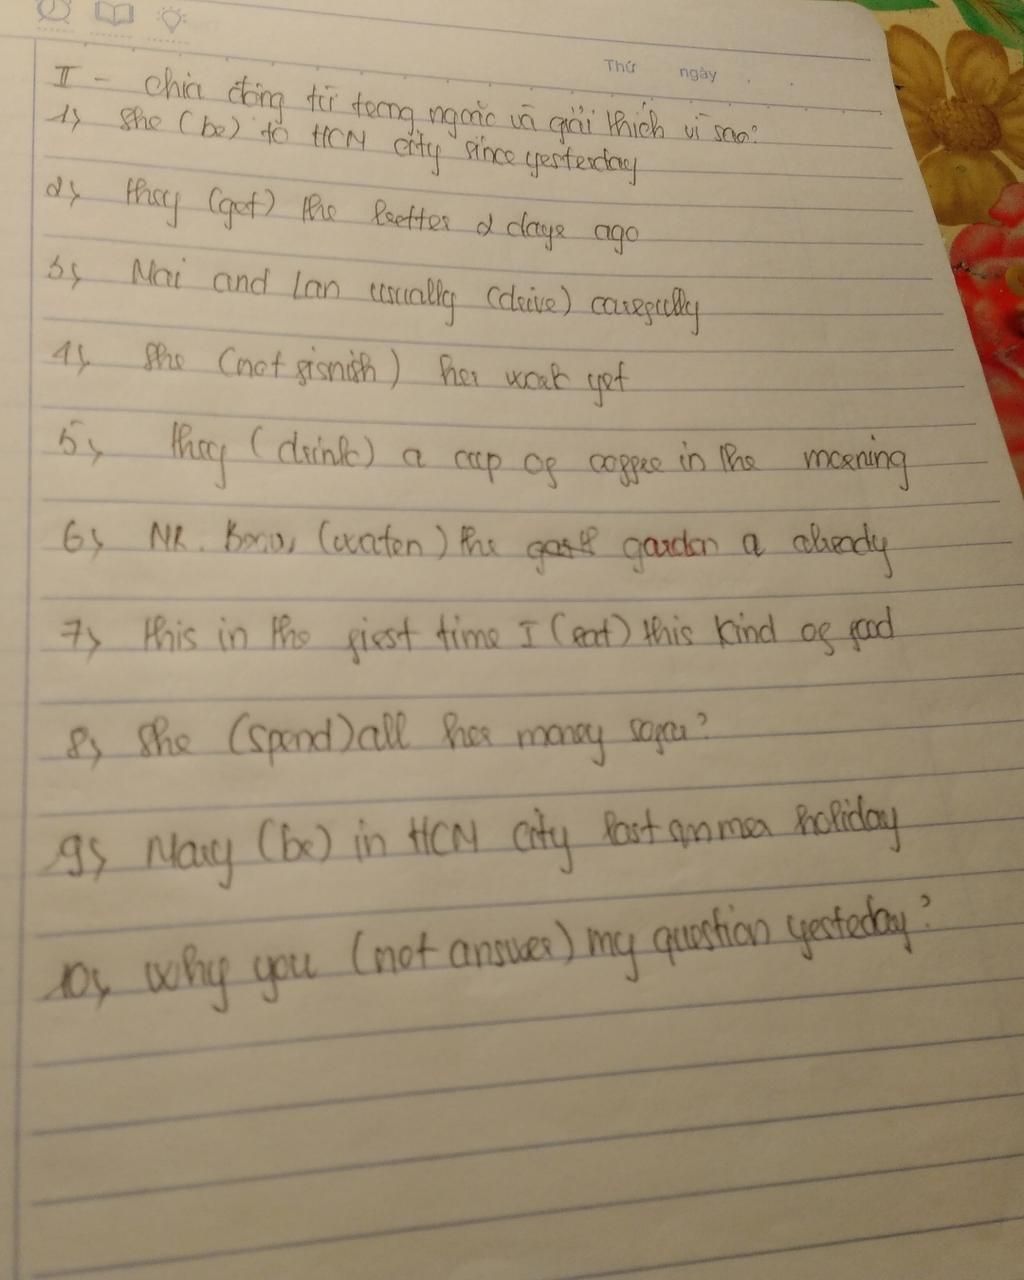 Thứ ngày
II - chia động từ trong ngoặc và giải thích vì sao?
1, She (be) to HCM city since yesterday
2, they (get) the letter 2 days ago
3, Mai and Lan usually (drive) carefully
4, She (not fisnish) her work yet
5, they (drink) a cup of coffee in the morning
6, MR. (waten) the garden a already
7, this in the first time I (eat) this kind of food
8, She (spend) all her money ?
9, Mary (be) in HCM city last holiday
10, Why you (not answer) my question yesteday?